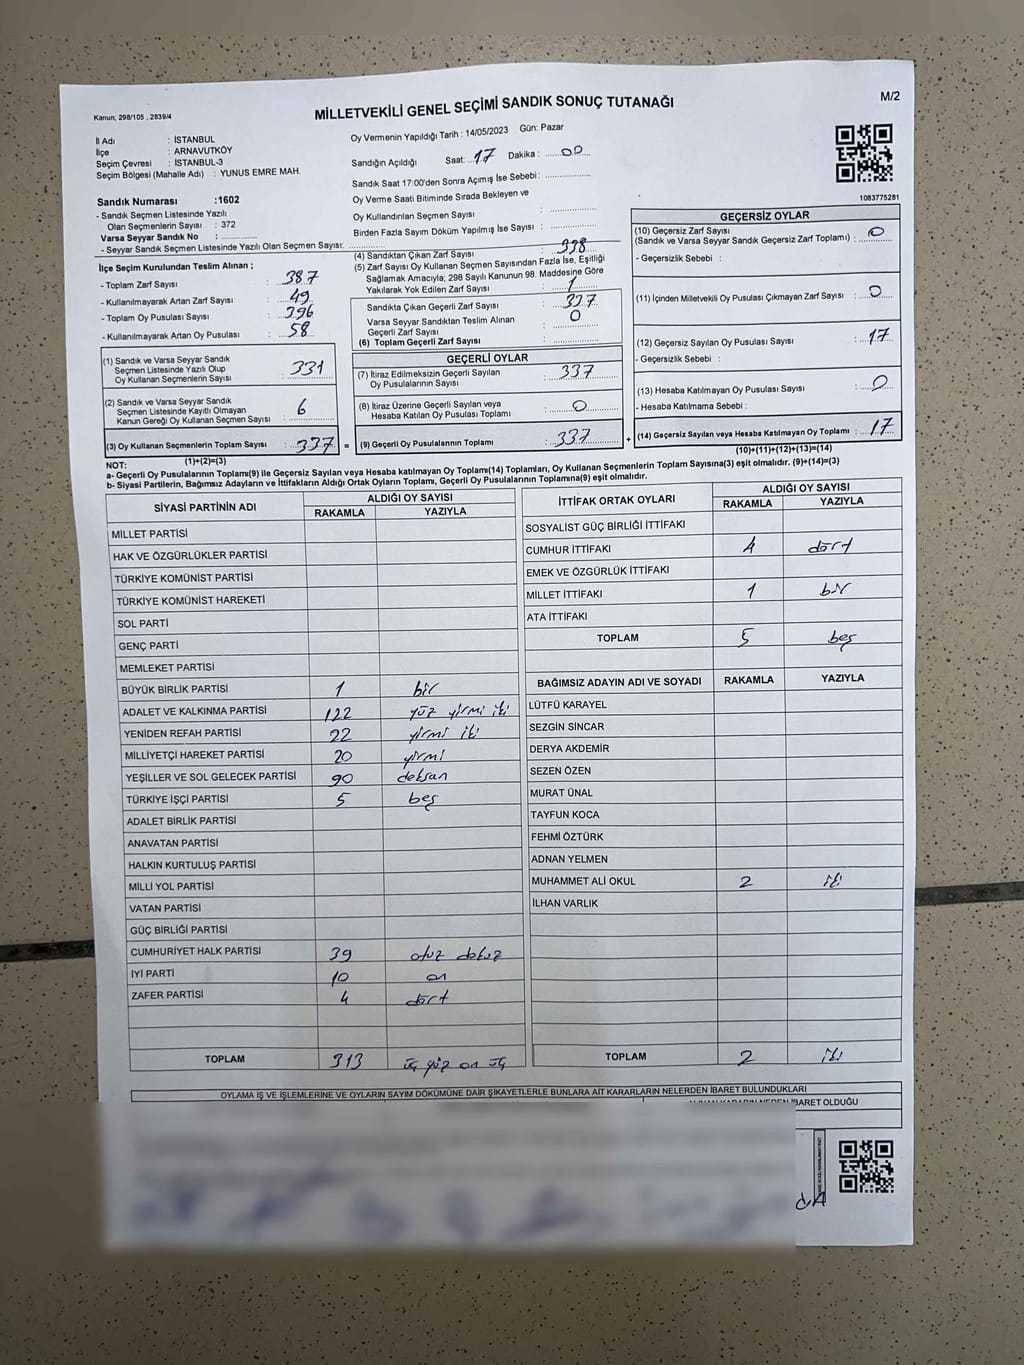 Kanun; 298/105 , 2839/4
MİLLETVEKİLİ GENEL SEÇİMİ SANDIK SONUÇ TUTANAĞI
M/2
İl Adı : İSTANBUL
İlçe : ARNAVUTKÖY
Seçim Çevresi : İSTANBUL-3
Seçim Bölgesi (Mahalle Adı) : YUNUS EMRE MAH.
Oy Vermenin Yapıldığı Tarih : 14/05/2023 Gün: Pazar
Sandığın Açıldığı Saat: 17 Dakika : 00
Sandık Saat 17:00'den Sonra Açımış İse Sebebi:
Oy Verme Saati Bitiminde Sırada Bekleyen ve
Oy Kullandırılan Seçmen Sayısı :
Birden Fazla Sayım Döküm Yapılmış İse Sayısı :
1083775281
Sandık Numarası :1602
- Sandık Seçmen Listesinde Yazılı
Olan Seçmenlerin Sayısı : 372
Varsa Seyyar Sandık No :
- Seyyar Sandık Seçmen Listesinde Yazılı Olan Seçmen Sayısı:
İlçe Seçim Kurulundan Teslim Alınan ;
- Toplam Zarf Sayısı : 387
- Kullanılmayarak Artan Zarf Sayısı : 49
- Toplam Oy Pusulası Sayısı : 396
- Kullanılmayarak Artan Oy Pusulası : 58
(1) Sandık ve Varsa Seyyar Sandık
Seçmen Listesinde Yazılı Olup
Oy Kullanan Seçmenlerin Sayısı : 331
(2) Sandık ve Varsa Seyyar Sandık
Seçmen Listesinde Kayıtlı Olmayan
Kanun Gereği Oy Kullanan Seçmen Sayısı : 6
(3) Oy Kullanan Seçmenlerin Toplam Sayısı : 337 =
(1)+(2)=(3)
(4) Sandıktan Çıkan Zarf Sayısı : 338
(5) Zarf Sayısı Oy Kullanan Seçmen Sayısından Fazla İse, Eşitliği
Sağlamak Amacıyla; 298 Sayılı Kanunun 98. Maddesine Göre
Yakılarak Yok Edilen Zarf Sayısı : 1
Sandıkta Çıkan Geçerli Zarf Sayısı : 337
Varsa Seyyar Sandıktan Teslim Alınan
Geçerli Zarf Sayısı : 0
(6) Toplam Geçerli Zarf Sayısı :
GEÇERLİ OYLAR
(7) İtiraz Edilmeksizin Geçerli Sayılan
Oy Pusulalarının Sayısı : 337
(8) İtiraz Üzerine Geçerli Sayılan veya
Hesaba Katılan Oy Pusulası Toplamı : 0
(9) Geçerli Oy Pusulalarının Toplamı : 337 +
GEÇERSİZ OYLAR
(10) Geçersiz Zarf Sayısı
(Sandık ve Varsa Seyyar Sandık Geçersiz Zarf Toplamı) : 0
- Geçersizlik Sebebi :
(11) İçinden Milletvekili Oy Pusulası Çıkmayan Zarf Sayısı : 0
(12) Geçersiz Sayılan Oy Pusulası Sayısı : 17
- Geçersizlik Sebebi :
(13) Hesaba Katılmayan Oy Pusulası Sayısı : 0
- Hesaba Katılmama Sebebi :
(14) Geçersiz Sayılan veya Hesaba Katılmayan Oy Toplamı : 17
(10)+(11)+(12)+(13)=(14)
NOT:
a- Geçerli Oy Pusulalarının Toplamı(9) ile Geçersiz Sayılan veya Hesaba katılmayan Oy Toplamı(14) Toplamları, Oy Kullanan Seçmenlerin Toplam Sayısına(3) eşit olmalıdır. (9)+(14)=(3)
b- Siyasi Partilerin, Bağımsız Adayların ve İttifakların Aldığı Ortak Oyların Toplamı, Geçerli Oy Pusulalarının Toplamına(9) eşit olmalıdır.
SİYASİ PARTİNİN ADI ALDIĞI OY SAYISI
RAKAMLA YAZIYLA
MİLLET PARTİSİ
HAK VE ÖZGÜRLÜKLER PARTİSİ
TÜRKİYE KOMÜNİST PARTİSİ
TÜRKİYE KOMÜNİST HAREKETİ
SOL PARTİ
GENÇ PARTİ
MEMLEKET PARTİSİ
BÜYÜK BİRLİK PARTİSİ 1 bir
ADALET VE KALKINMA PARTİSİ 122 yüz yirmi iki
YENİDEN REFAH PARTİSİ 22 yirmi iki
MİLLİYETÇİ HAREKET PARTİSİ 20 yirmi
YEŞİLLER VE SOL GELECEK PARTİSİ 90 doksan
TÜRKİYE İŞÇİ PARTİSİ 5 beş
ADALET BİRLİK PARTİSİ
ANAVATAN PARTİSİ
HALKIN KURTULUŞ PARTİSİ
MİLLİ YOL PARTİSİ
VATAN PARTİSİ
GÜÇ BİRLİĞİ PARTİSİ
CUMHURİYET HALK PARTİSİ 39 otuz dokuz
İYİ PARTİ 10 on
ZAFER PARTİSİ 4 dört
TOPLAM 313 üç yüz on üç
İTTİFAK ORTAK OYLARI ALDIĞI OY SAYISI
RAKAMLA YAZIYLA
SOSYALİST GÜÇ BİRLİĞİ İTTİFAKI
CUMHUR İTTİFAKI 4 dört
EMEK VE ÖZGÜRLÜK İTTİFAKI
MİLLET İTTİFAKI 1 bir
ATA İTTİFAKI
TOPLAM 5 beş
BAĞIMSIZ ADAYIN ADI VE SOYADI RAKAMLA YAZIYLA
LÜTFÜ KARAYEL
SEZGİN SİNCAR
DERYA AKDEMİR
SEZEN ÖZEN
MURAT ÜNAL
TAYFUN KOCA
FEHMİ ÖZTÜRK
ADNAN YELMEN
MUHAMMET ALİ OKUL 2 iki
İLHAN VARLIK
TOPLAM 2 iki
OYLAMA İŞ VE İŞLEMLERİNE VE OYLARIN SAYIM DÖKÜMÜNE DAİR ŞİKAYETLERLE BUNLARA AİT KARARLARIN NELERDEN İBARET BULUNDUKLARI
İBARET OLDUĞU